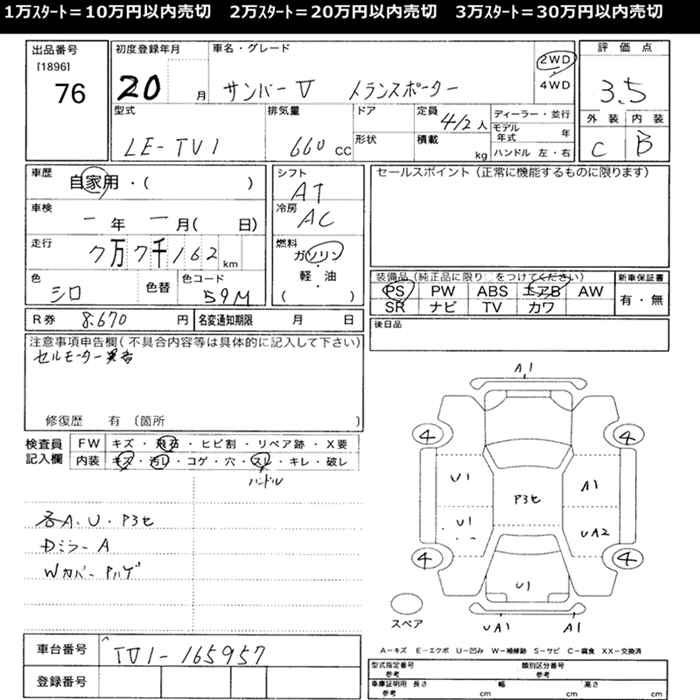 1万ｽﾀｰﾄ＝10万円以内売切　2万ｽﾀｰﾄ＝20万円以内売切　3万ｽﾀｰﾄ＝30万円以内売切
出品番号
[1896]
76
初度登録年月
20 月
車名・グレード
サンバーV トランスポーター
2WD
4WD
評価点
3.5
外装 内装
C B
型式
LE-TV1
排気量
660 CC
ドア
形状
定員
4/2人
積載
kg
ディーラー・並行
モデル年式 年
ハンドル 左・右
車歴
自家用・( )
車検
一年一月( 日)
走行
7万7千162km
色
シロ
色替
色コード
59M
シフト
AT
冷房
AC
燃料
ガソリン
・
軽・油
( )
セールスポイント (正常に機能するものに限ります)
装備品 (純正品に限り○をつけてください)
PS PW ABS エアB AW
SR ナビ TV カワ
新車保証書
有・無
R券 8.670円
名変通知期限 月 日
後日品
注意事項申告欄(不具合内容等は具体的に記入して下さい)
セルモーター異音
修復歴 有 (箇所 )
検査員記入欄
FW キズ・飛石・ヒビ割・リペア跡・X要
内装 キズ・汚レ・コゲ・穴・スレ・キレ・破レ
ハンドル
各A.U・P3セ
Dミラー A
Wカバー Pハゲ
A1
4 4
U1 P3セ A1
U1 UA2
4 4
U1
スペア
UA1 A1
A－キズ E－エクボ U－凹み W－補修跡 S－サビ C－腐食 XX－交換済
車台番号
TV1-165957
登録番号
型式指定番号
参考
類別区分番号
参考
車庫証明用
参考
長さ cm
幅 cm
高さ cm